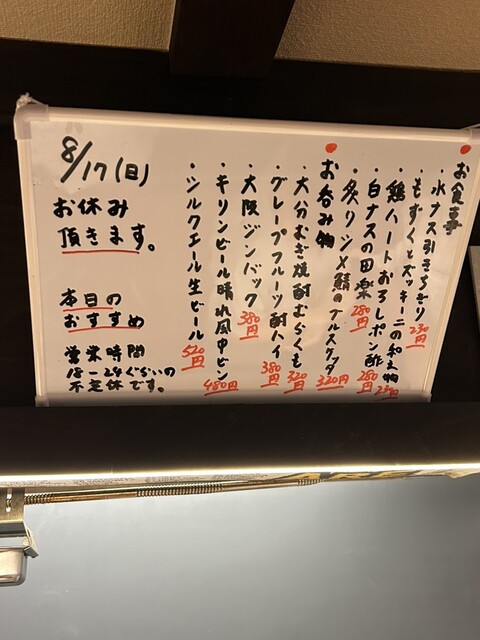 お食事
・水ナス引きちぎり 230円
・もずくとズッキーニの和え物 230円
・鶏ハートおろしポン酢 280円
・白ナスの田楽 280円
・炙りシメ鯖のブルスケッタ 320円
お呑み物
・大分むぎ焼酎むらくも 320円
・グレープフルーツ酎ハイ 380円
・大阪ジンバック 380円
・キリンビール晴れ風中ビン 480円
・シルクエール生ビール 520円
8/17(日)
お休み
頂きます。
本日の
おすすめ
営業時間
18-24ぐらいの
不定休です。